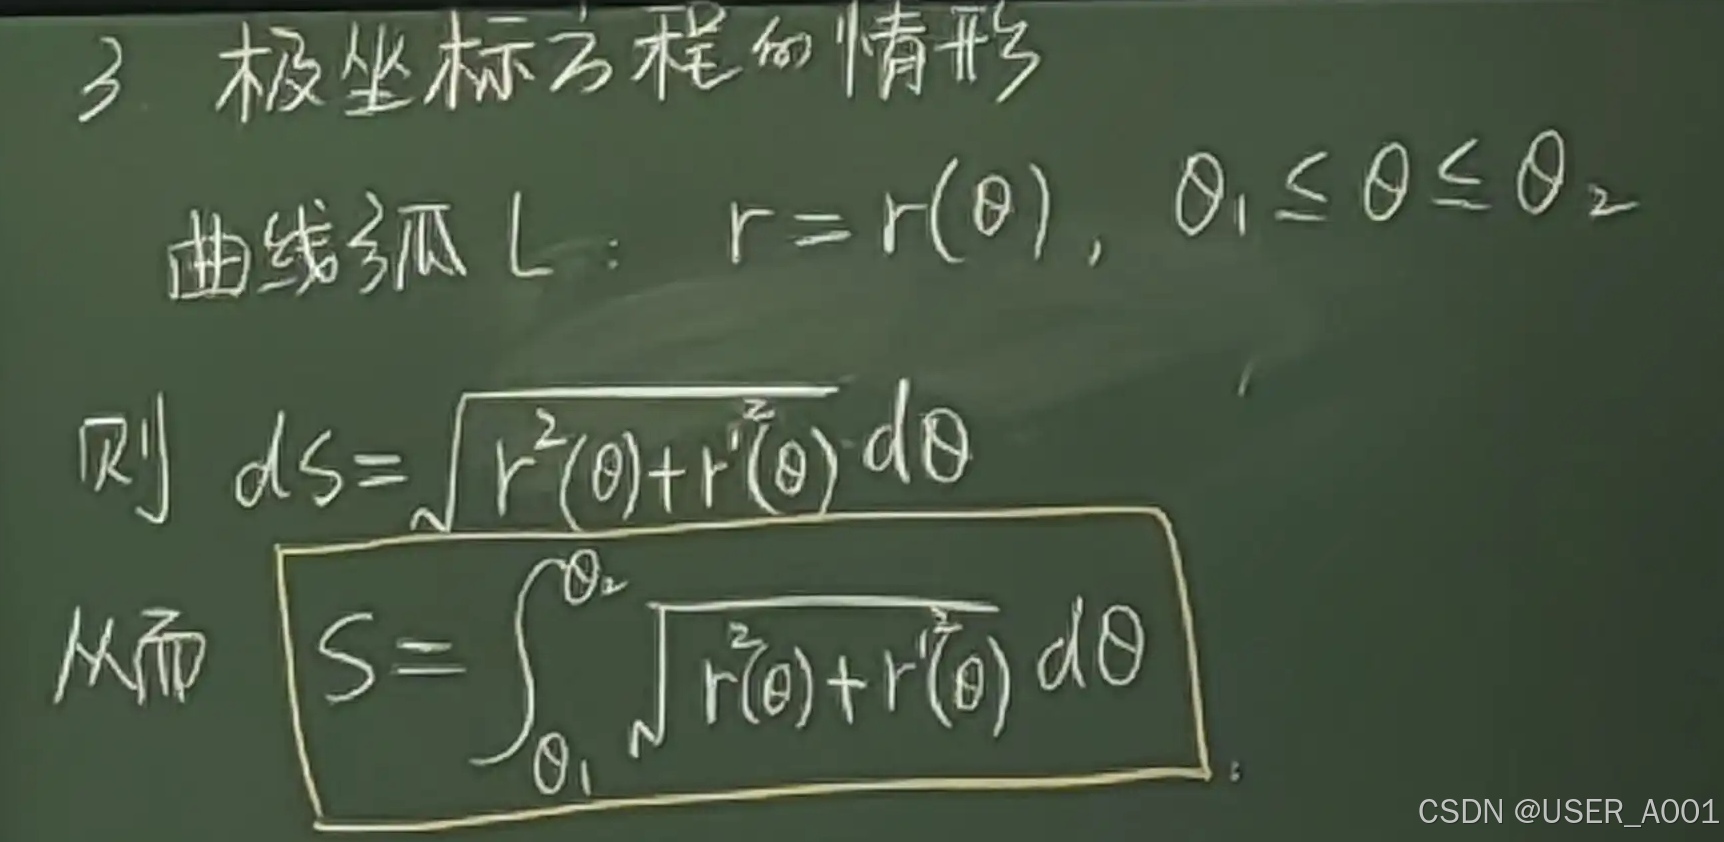 3 极坐标方程的情形
曲线弧 L： r = r(θ)， θ₁ ≤ θ ≤ θ₂
则 ds = √(r²(θ) + r'²(θ)) dθ
从而 S = ∫_{θ₁}^{θ₂} √(r²(θ) + r'²(θ)) dθ
CSDN @USER_A001